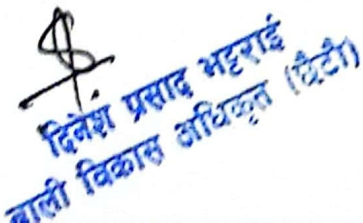 दिनेश प्रसाद भट्टराई
बाली विकास अधिकृत (छैटौं)